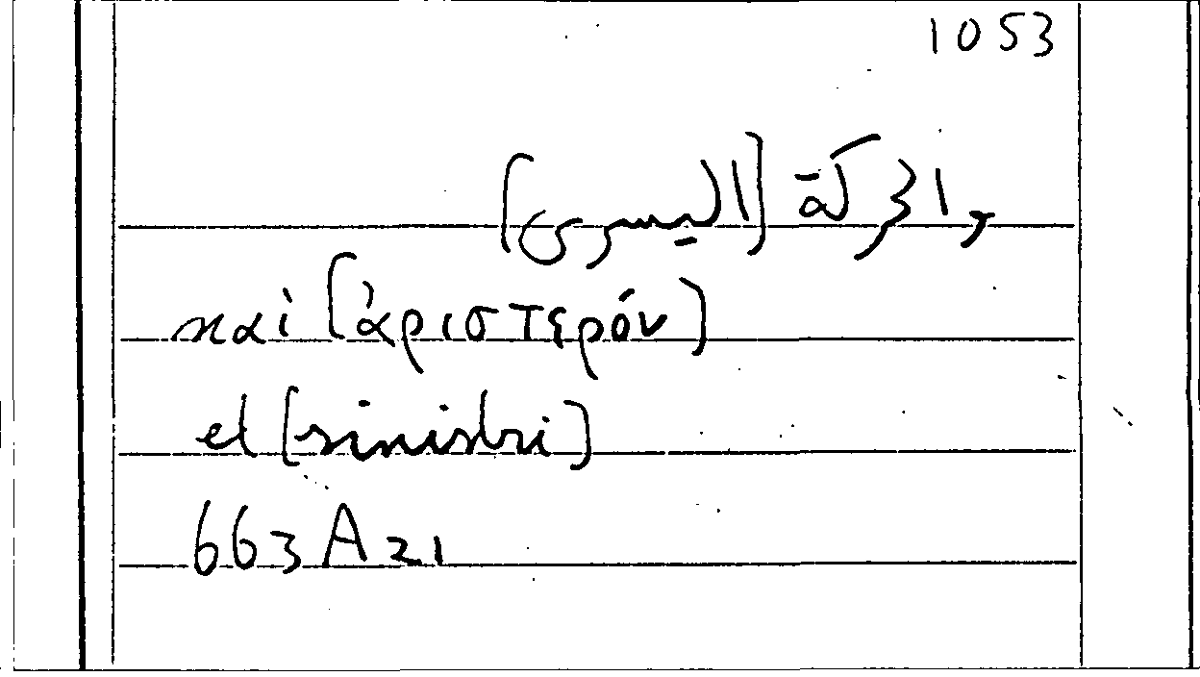 1053
[اليسرى]
καὶ [ἀριστερόν]
et [sinistri]
663 A 21